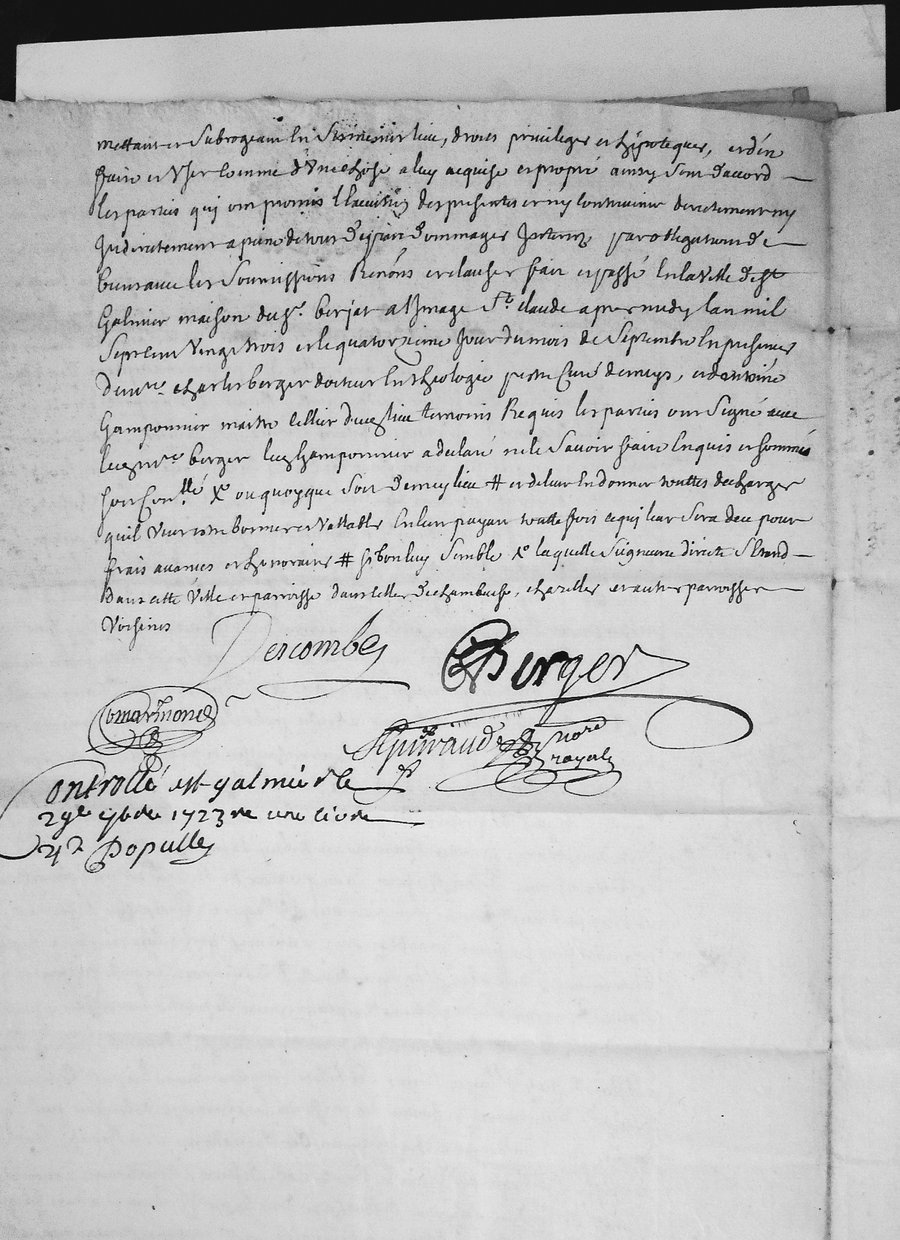 mettant et subrogeant en ses mesme lieu, droits privileges et hipoteques, et d'en
faire et user comme d'une chose a luy acquise et propre ainsy sont d'accord
les parties qui ont promis l'execution des presentes et ny contrevenir directement ny
Indirectement a peine de tous despans dommages Interests par obligation de
biens avec les soumissions Renons et clauses fait et passé en la ville de st
Galmier maison du sr. berjat a l'Image st. claude apres midy l'an mil
sept cent vingt trois et le quatorzieme Jour du mois de Septembre En presence
de mre. charles berger docteur en theologie prestre Curé de meys, et d'antoine
Champonnier maitre cellier de ce lieu temoins Requis les parties ont Signé avec
led. mre. berger led. champonnier a declaré ne le Savoir faire Enquis et sommés
ou quoyque soit de meys lieu # et de leur en donner touttes decharges
qu'il verront bonnes et vallable en leur payant touttefois ce qui leur sera deu pour
frais avances et honoraires # sy bon luy semble laquelle seigneurie directe s'etend
dans cette ville et parroisse dans celles de chambeuf, chazelles et autres parroisses
voisines
Descombes
Berger
marmond
Guiraud nore
royal
Controllé a st galmier le
29e 7bre 1723 Re une livre
4s Populle